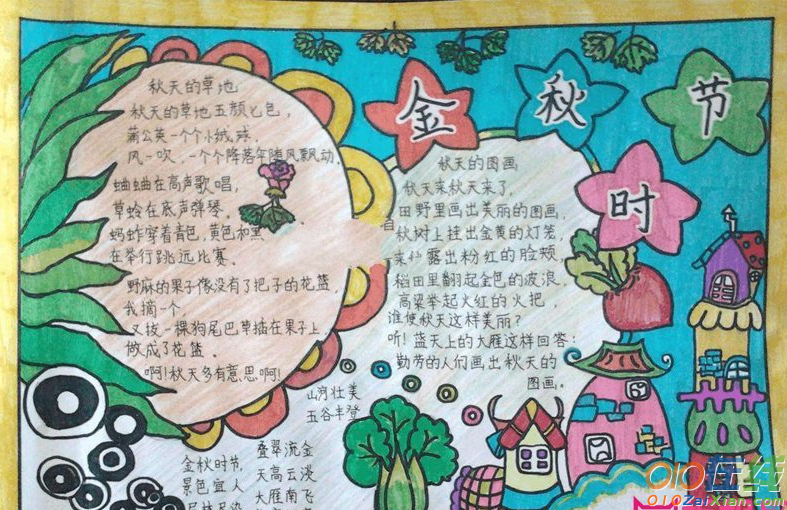 金秋时节
秋天的草地
秋天的草地五颜七色,
蒲公英一个个小绒球.
风一吹,一个个降落伞随风飘动.
蛐蛐在高声歌唱,
草蛉在底声弹琴。
蚂蚱穿着青色,黄色和黑
在举行跳远比赛。
野麻的果子像没有了把子的花篮,
我摘一个
又拔一棵狗尾巴草插在果子上,
做成了花篮。
啊!秋天多有意思啊!
秋天的图画
秋天来秋天来了,
田野里画出美丽的图画,
秋树上挂出金黄的灯笼,
露出粉红的脸颊,
稻田里翻起金色的波浪,
高粱举起火红的火把,
谁使秋天这样美丽?
听!蓝天上的大雁这样回答:
勤劳的人们画出秋天的
图画。
山河壮美
五谷丰登
金秋时节,
景色宜人
叠翠流金
天高云漫
大雁南飞
010在线
010ZaiXian.com